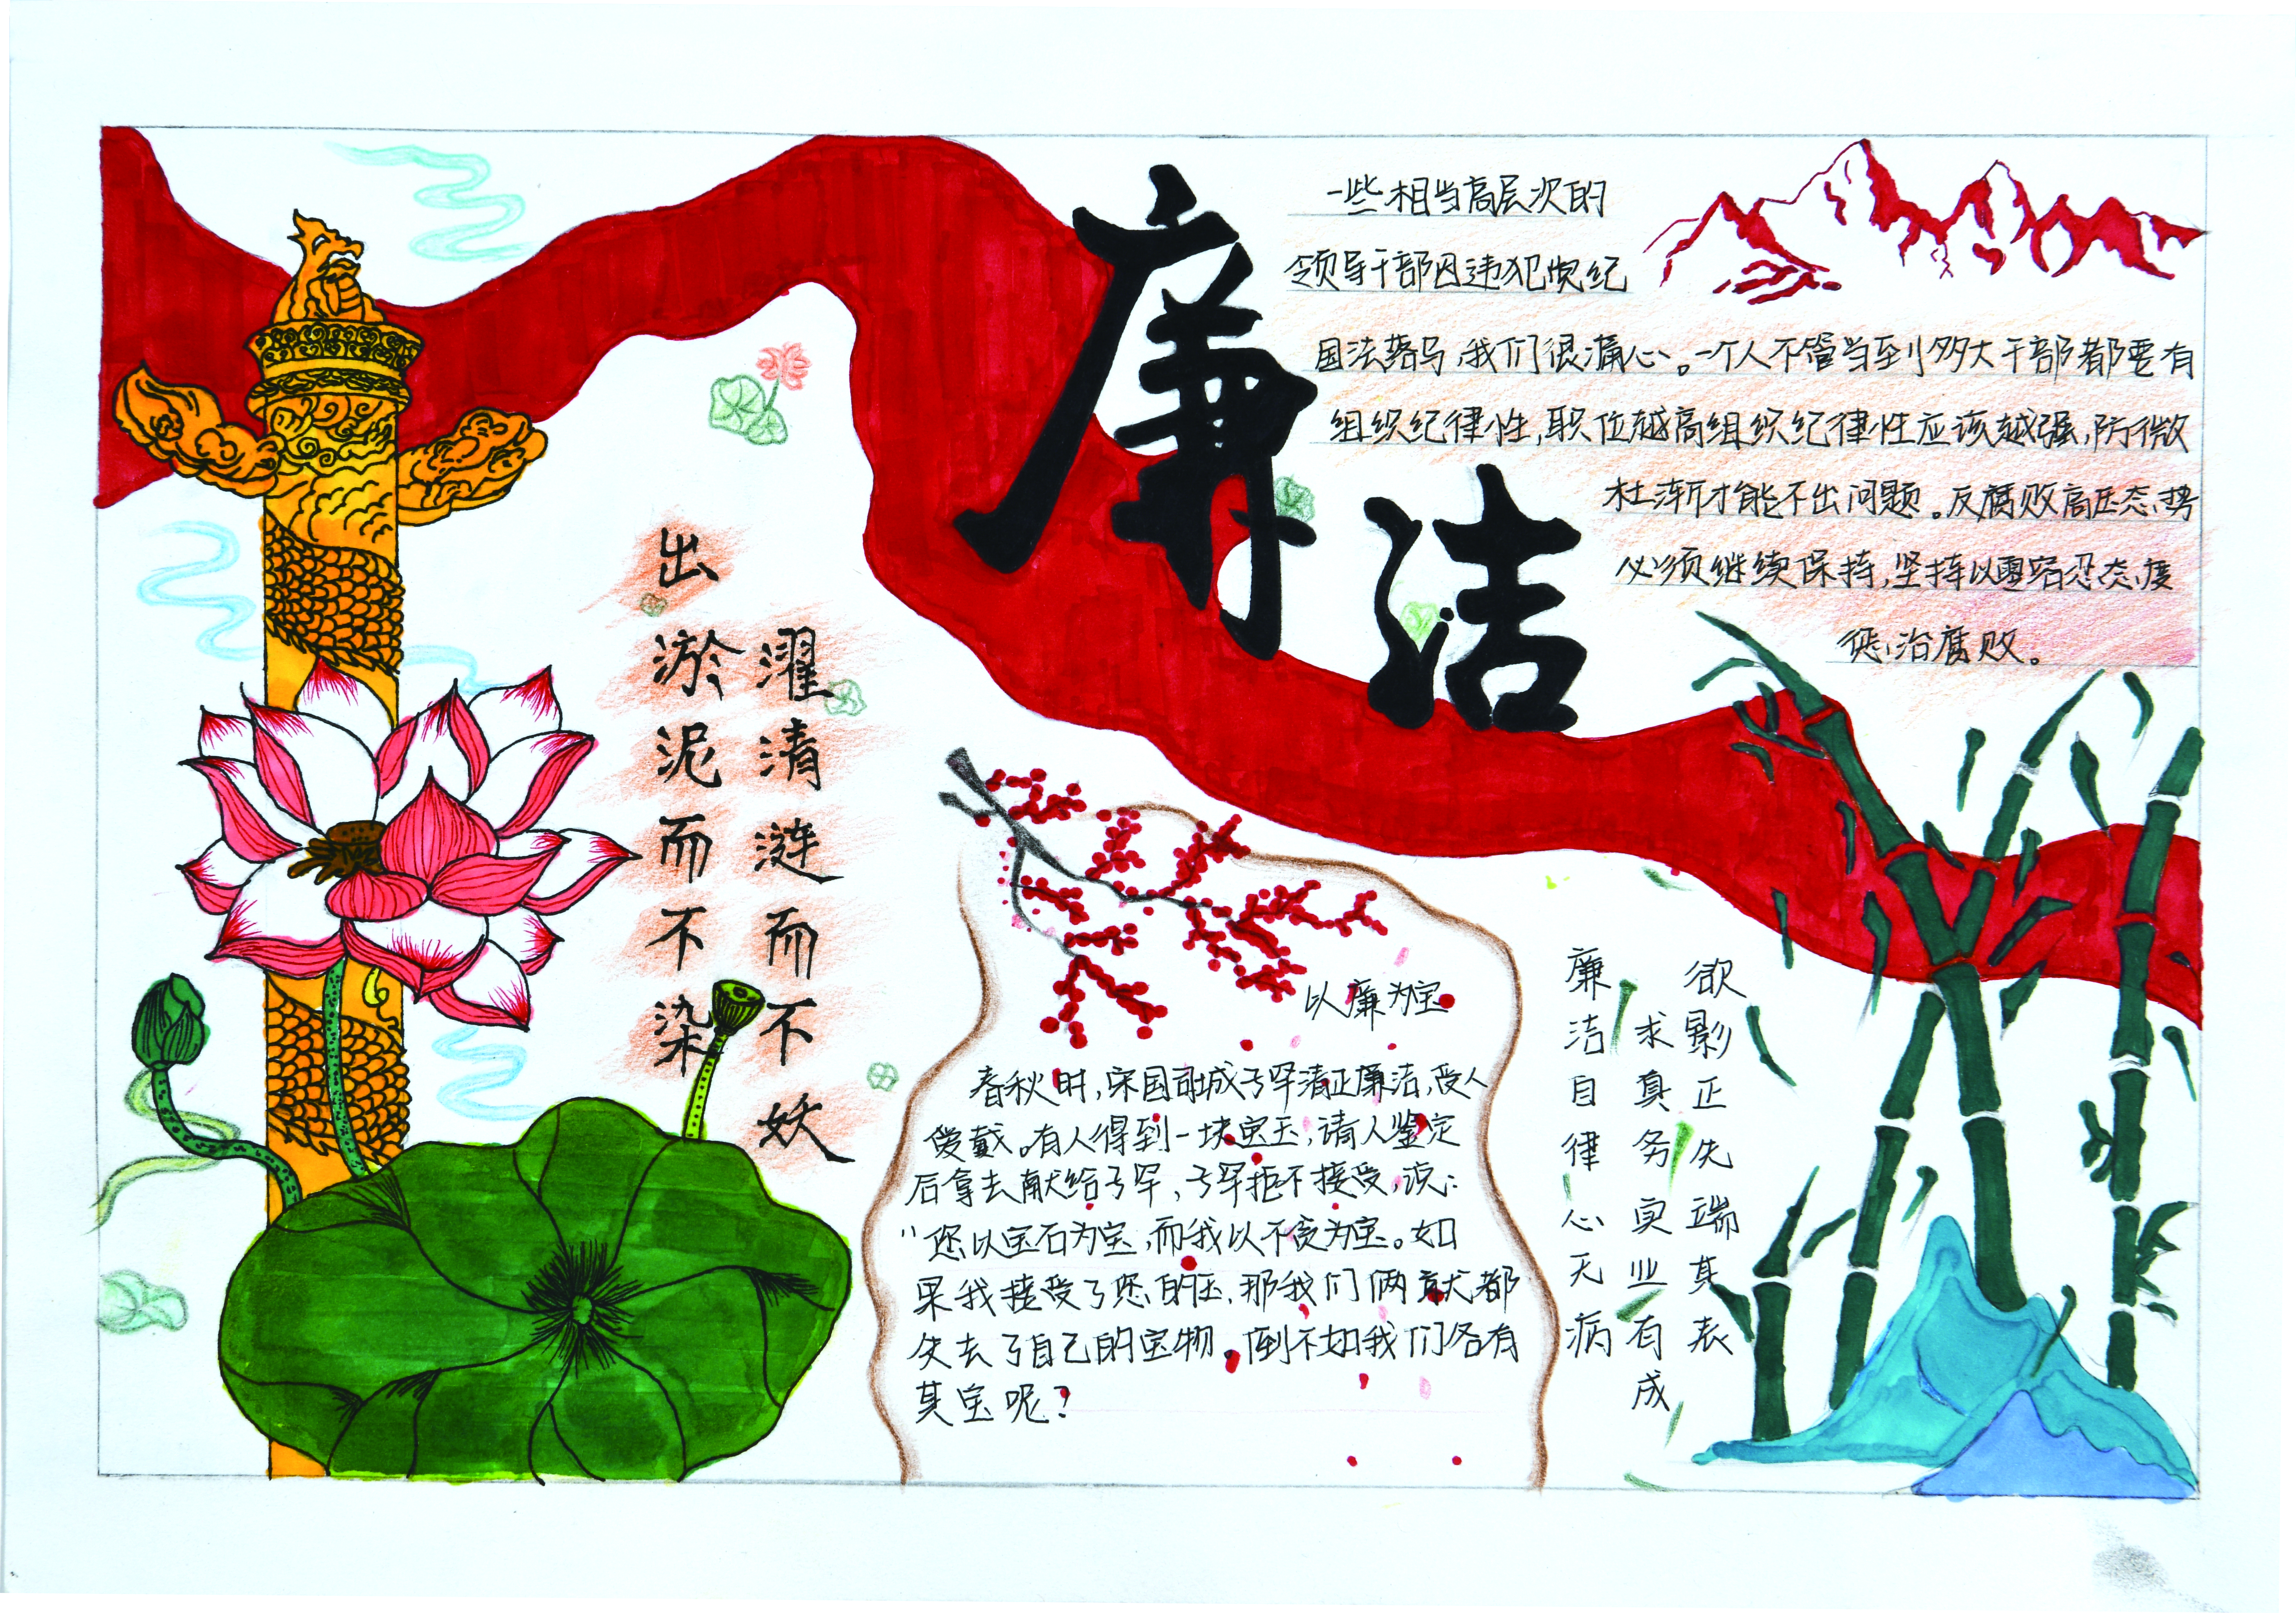 廉洁
一些相当高层次的
领导干部因违犯党纪
国法落马,我们很痛心。一个人不管当到多大干部都要有
组织纪律性,职位越高组织纪律性应该越强,防微
杜渐才能不出问题。反腐败高压态势
必须继续保持,坚持以零容忍态度
惩治腐败。
出淤泥而不染
濯清涟而不妖
以廉为宝
春秋时,宋国司城子罕清正廉洁,受人
爱戴。有人得到一块宝玉,请人鉴定
后拿去献给子罕,子罕拒不接受,说:
“您以宝石为宝,而我以不贪为宝。如
果我接受了您的玉,那我们俩就都
失去了自己的宝物。倒不如我们各有
其宝呢?
欲影正先端其表
求真务实业有成
廉洁自律心无病